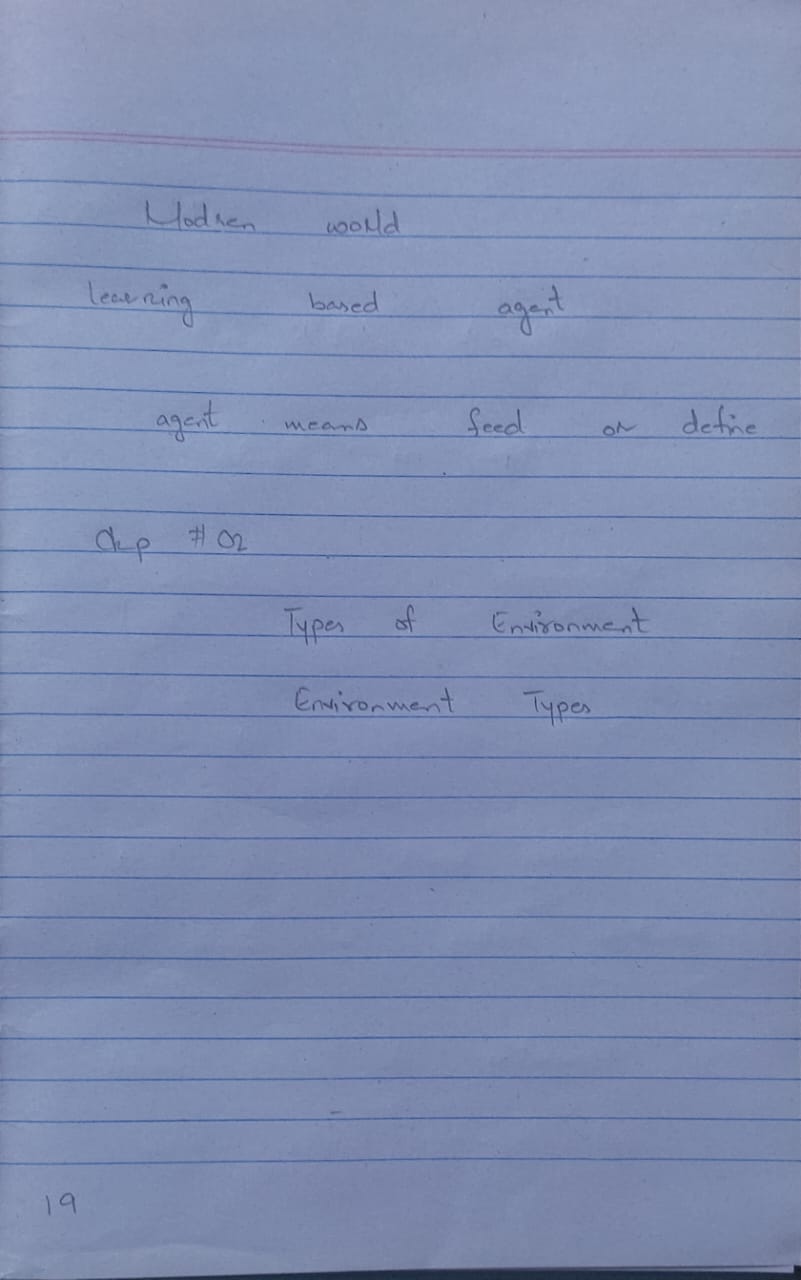 Modren world
learning based agent
agent means feed or define
Chp # 02
Types of Environment
Environment Types
19